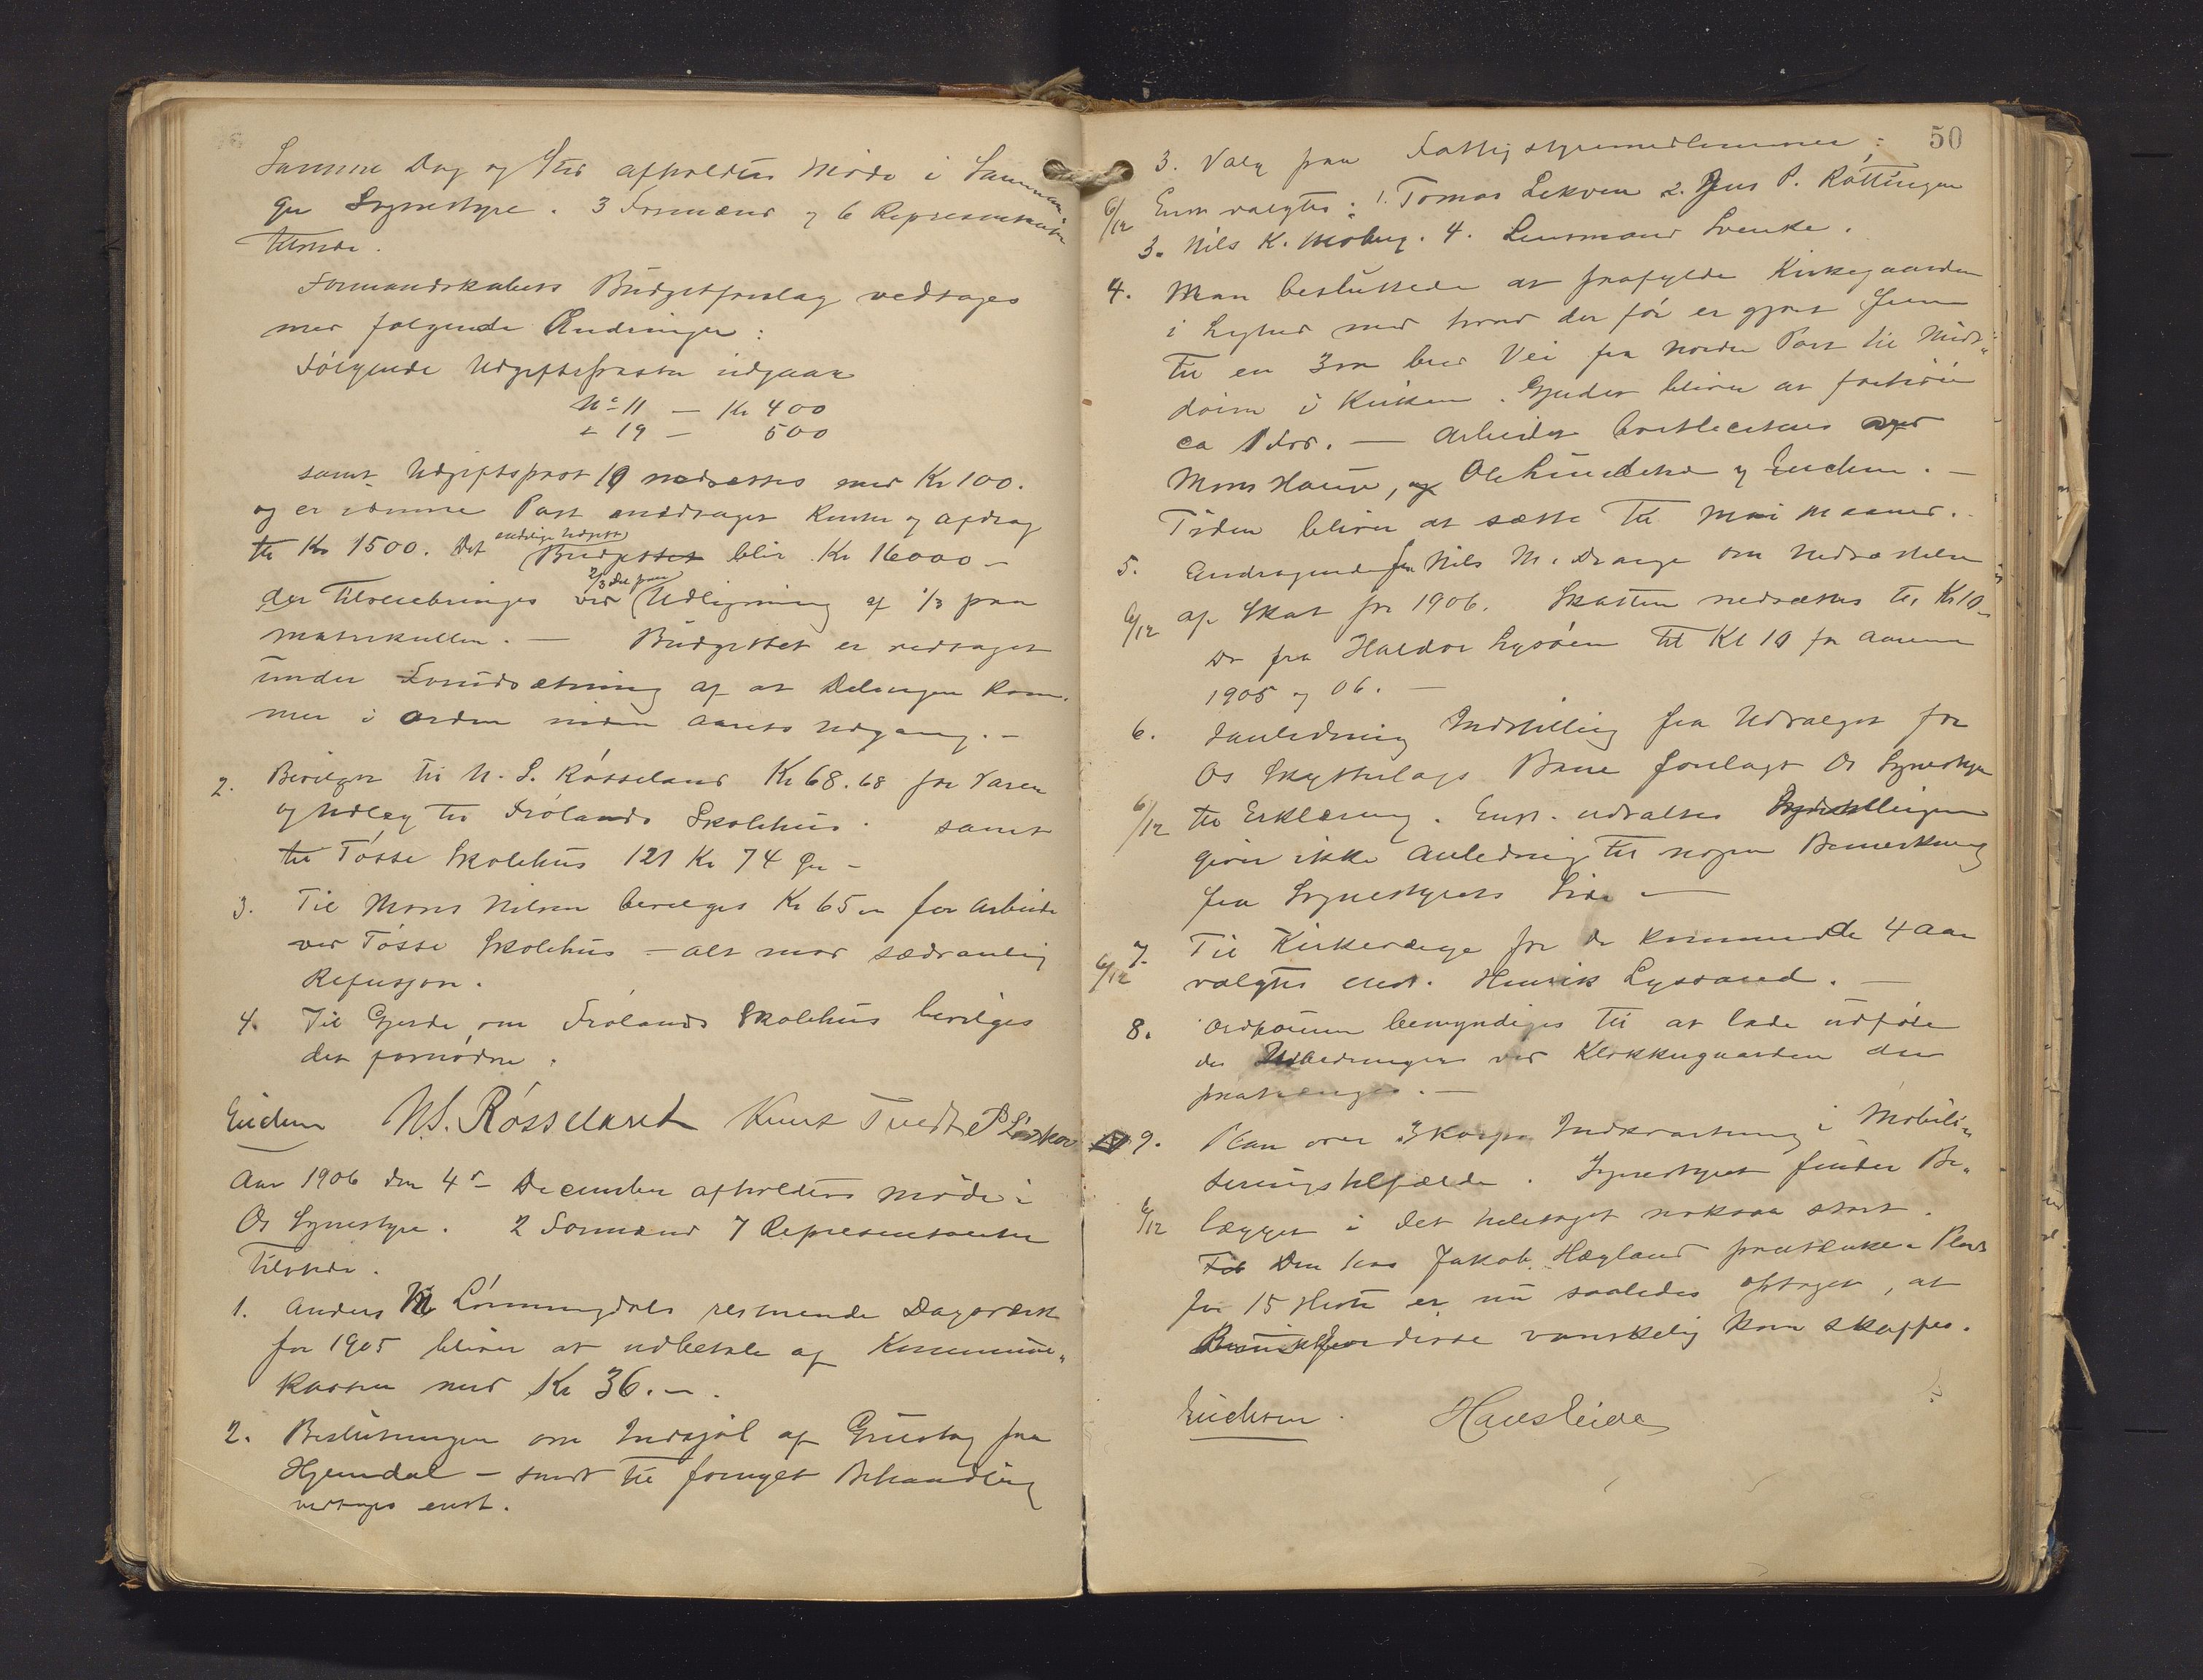 Samme Dag og Sted afholdtes Møde i Samnan-
ger Sognestyre. 3 Formænd og 6 Repræsentanter
tilstede.
Formandskabets Budgetforslag vedtages
med følgende Ændringer:
Følgende Udgiftsposter udgaar
No 11 – Kr 400
" 19 – 500
samt Udgiftspost 10 nedsættes med Kr 100.
og er denne Post inddraget Renter og afdrag
til Kr 1500. Det endelige Udgift Budgettet blir Kr 16000 –
der tilveiebringes ved 2/3 Del paa Udligning af 1/3 paa
matrikullen. – Budgettet er vedtaget
under Forudsætning af at Delingen kom-
mer i orden inden aarets Udgang. –
2. Bevilges til N. S. Røsseland Kr 68.68 for Varer
og Udlæg til Frølands Skolehus samt
til Tøsse Skolehus 121 Kr 74 Øre –
3. Til Mons Nilsen bevilges Kr 65 – for arbeide
ved Tøsse Skolehus – alt mod sædvanlig
Refusjon.
4. Til Gjerde om Frølands Skolehus bevilges
det fornødne.
Erichsen N.S. Røsseland Knut Tvedt
Aar 1906 den 4de December afholdtes møde i
Os Sognestyre. 2 Formænd 7 Repræsentanter
tilstede.
1. Anders Lønningdals resterende Dagsværk
for 1905 bliver at udbetale af Kommune-
kassen med Kr 36. –
2. Beslutningen om Indkjøb af Grustag fra
Hjemdal – sendt til fornyet Behandling
vedtages enst.
50
3. Valg paa Fattigstyremedlemmer:
6/12 Enst valgtes: 1. Tomas Lekven 2. Jens P. Røttingen
3. Nils K. Moberg. 4. Lensmand Svenke.
4. Man besluttede at paafylde Kirkegaarden
i Lighed med hvad der før er gjort frem
til en 3 m bred Vei fra nordre Port til Midt-
døren i Kirken. Gjerdet bliver at forhøie
ca 1 Fod. – Arbeidet bortlicteres ved
Mons Haugen, og Ole Lundetræ og Erichsen. –
Tiden bliver at sætte til Mai Maaned.
5. Andragende fra Nils M. Drange om Nedsættelse
6/12 af Skat for 1906. Skatten nedsættes til Kr 10 –
Do fra Haldor Lysøen til Kr 10 for aarene
1905 og 06. –
6. I anledning Indstilling fra Udvalget for
Os Skytterlags Bane forelagt Os Sognestyre
6/12 til Erklæring. Enst. udtaltes Indstillingen
giver ikke Anledning til nogen Bemerkning
fra Sognestyrets Side –
7. Til Kirkeværge for de kommende 4 aar
6/12 valgtes enst. Henrik Lyssand. –
8. Ordføreren bemyndiges til at lade udføre
de Udbedringer ved Klokkergaarden der
paatrænges. –
9. Plan over Indkvartering i Mobili-
seringstilfælde. Sognestyret finder Be-
6/12 lægget i det heletaget noksaa stort.
Den hos Jakob Hægland paatænkte Plads
for 15 Heste er nu saaledes optaget, at
disse vanskelig kan skaffes.
Erichsen. Hans Leide